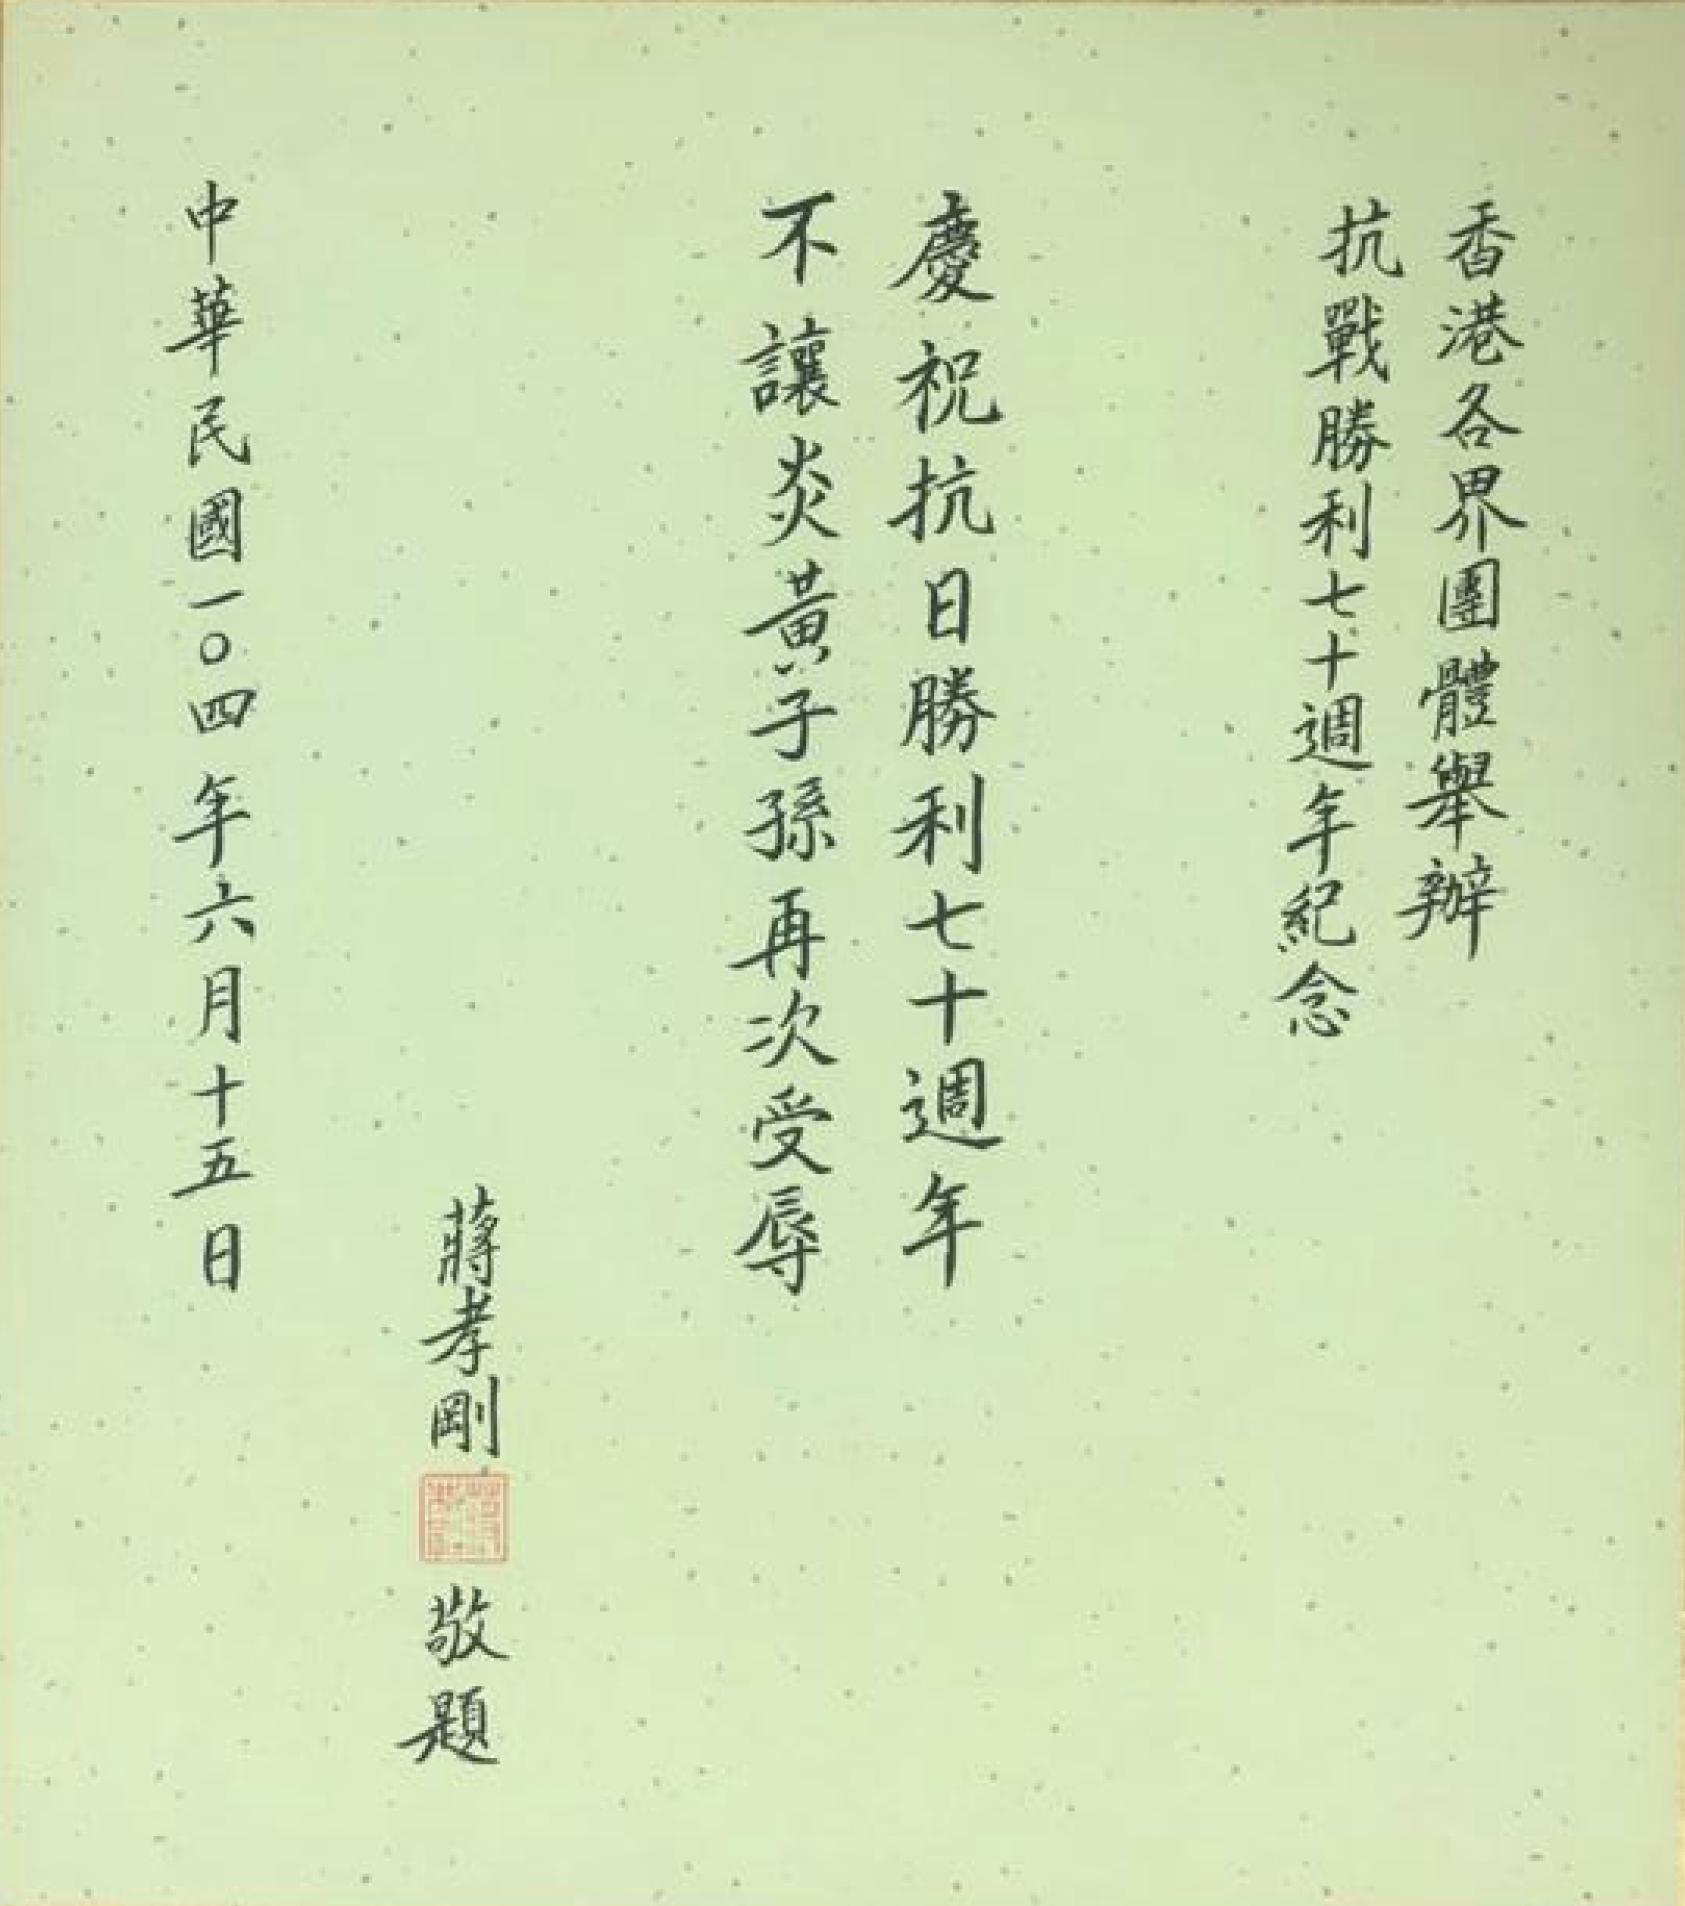 香港各界團體舉辦
抗戰勝利七十週年紀念
慶祝抗日勝利七十週年
不讓炎黃子孫再次受辱
蔣孝剛 敬題
中華民國一〇四年六月十五日